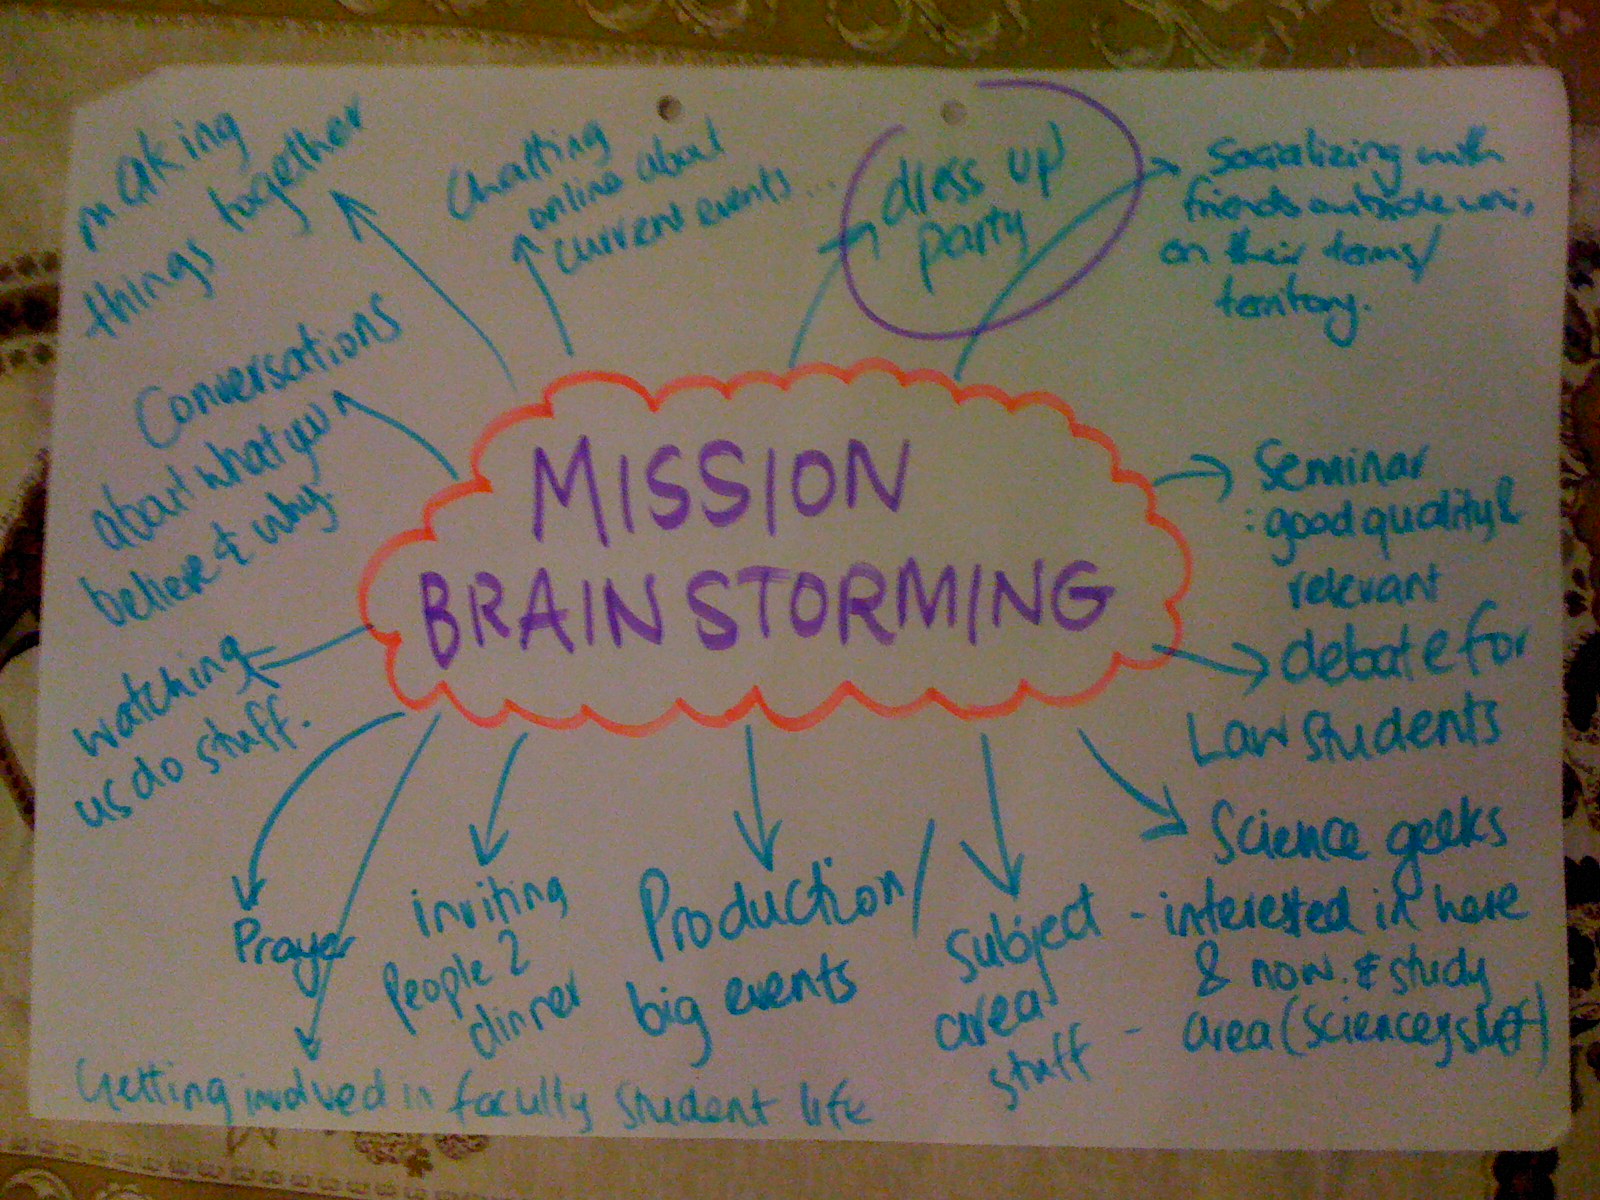 MISSION
BRAINSTORMING
making
things together
Chatting
online about
current events...
dress up
party
Socializing with
friends outside uni,
on their terms/
territory.
Seminar
: good quality &
relevant
debate for
Law students
Science geeks
- interested in here
& now. & study
- area (sciencey stuff)
subject
area
stuff
Production/
big events
inviting
People 2
dinner
Getting involved in faculty student life
Prayer
watching
us do stuff.
Conversations
about what you
believe & why.